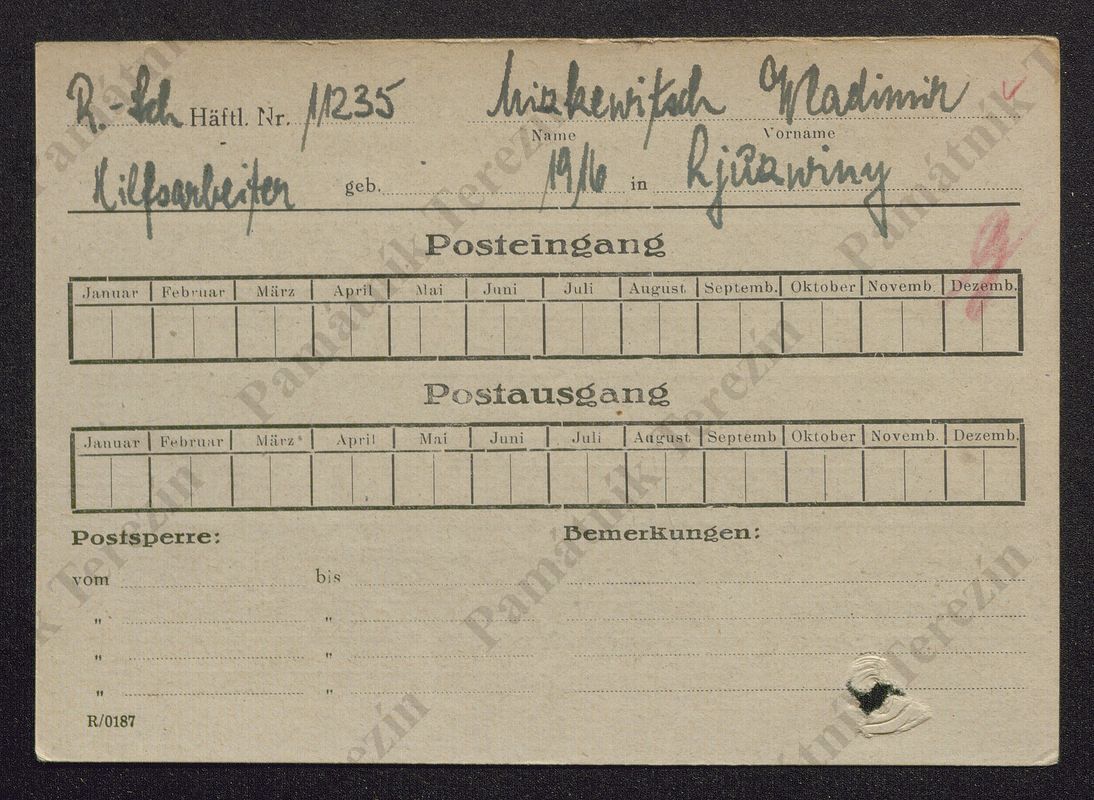 R.-Sch Häftl. Nr. 11235 Mizkewitsch Wladimir
Name Vorname
Hilfsarbeiter geb. 1916 in
Posteingang
Januar Februar März April Mai Juni Juli August Septemb. Oktober Novemb. Dezemb.
Postausgang
Januar Februar März April Mai Juni Juli August Septemb Oktober Novemb. Dezemb.
Postsperre: Bemerkungen:
vom bis
" "
" "
" "
R/0187
Památník Terezín